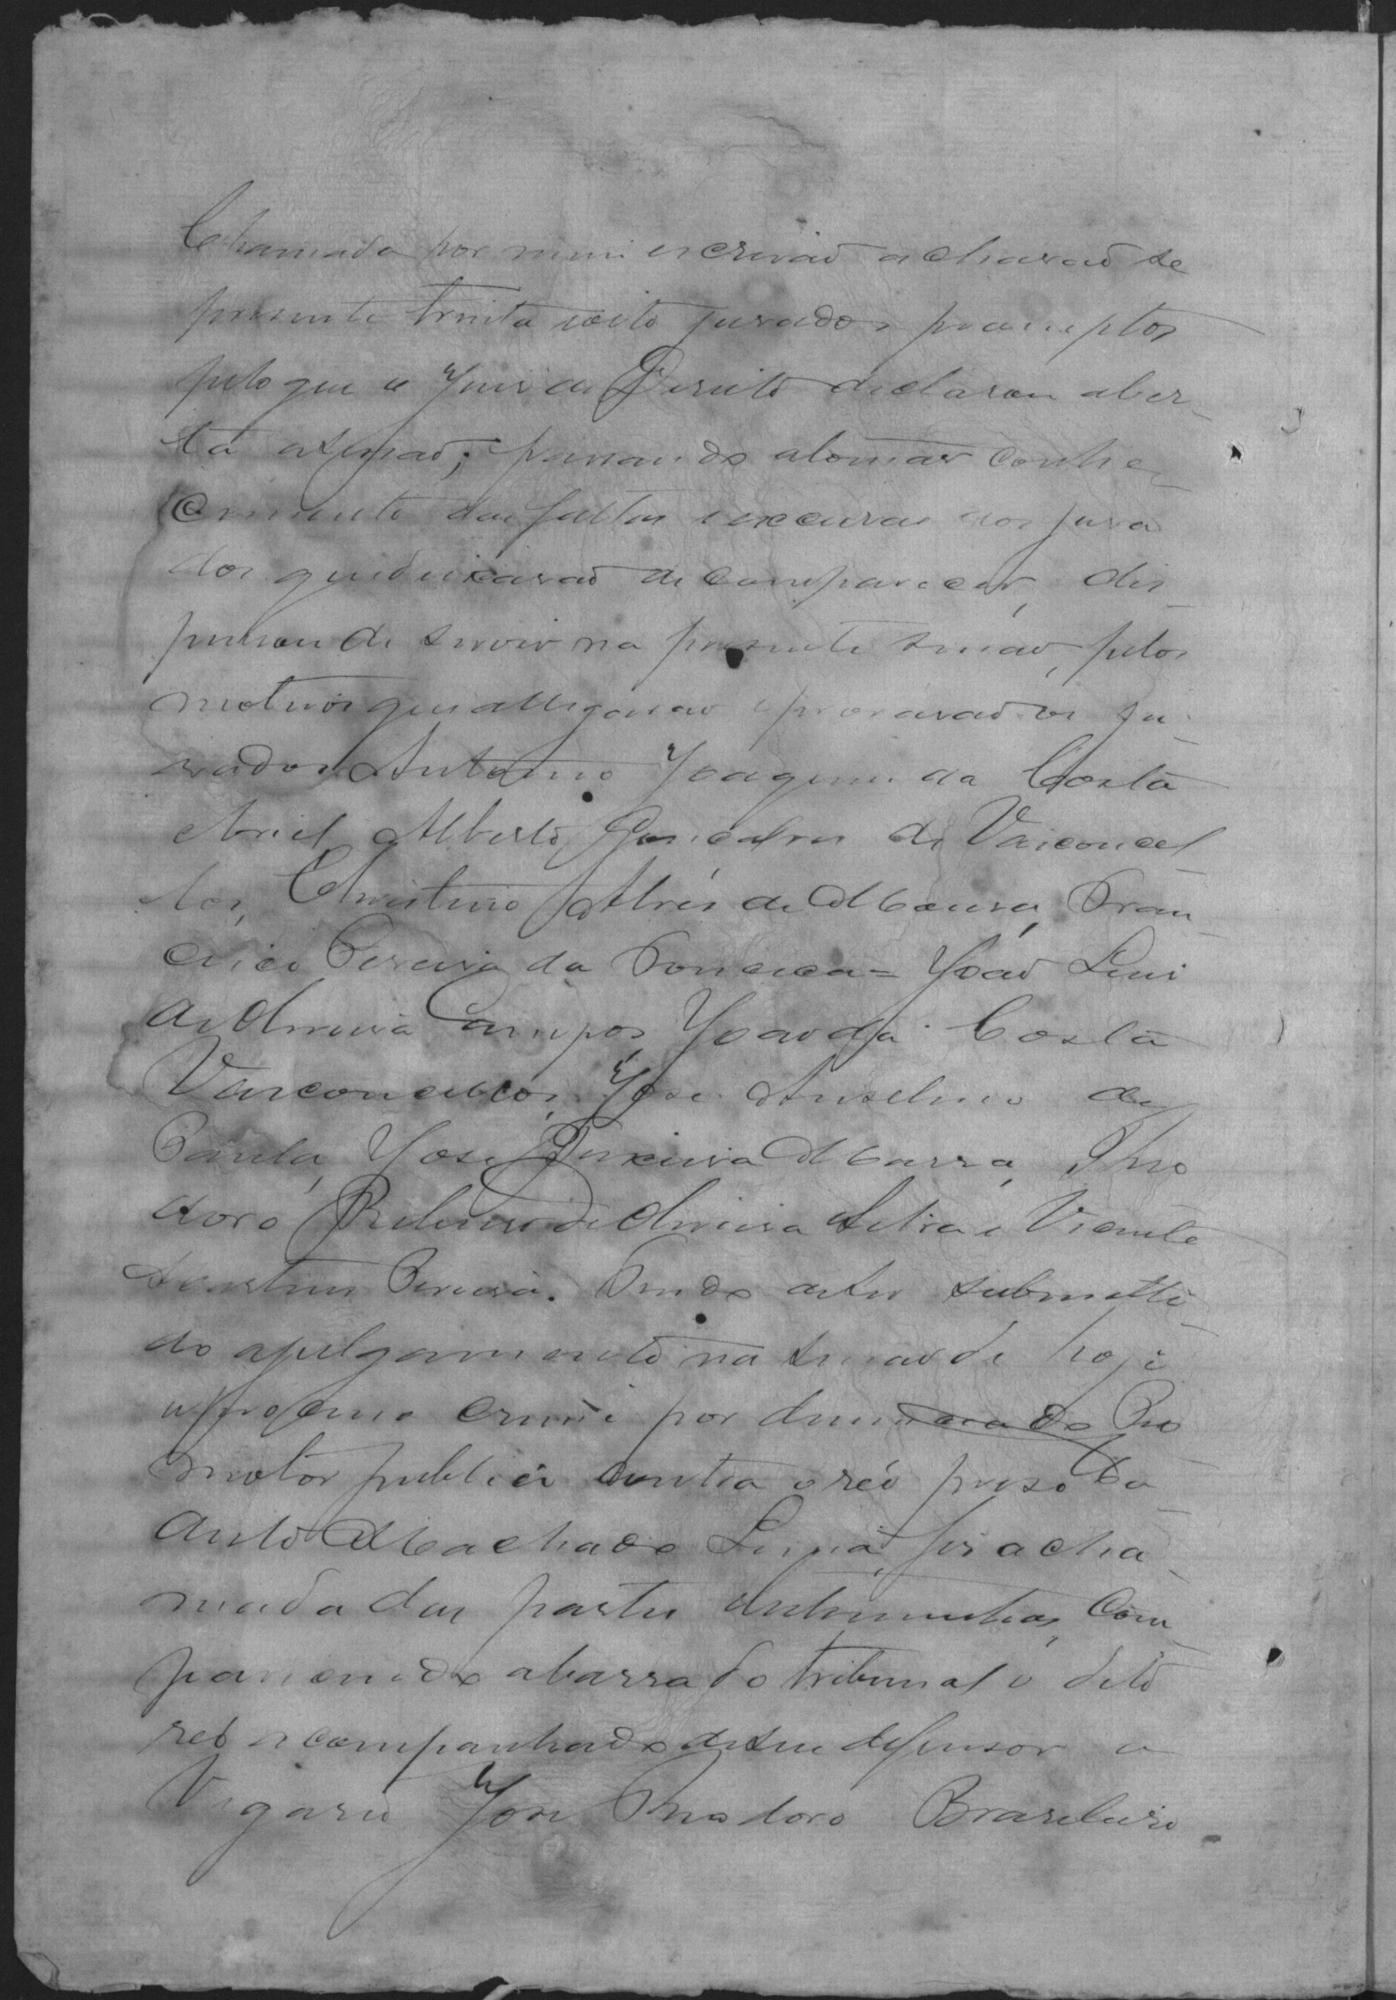 Chamada por mim escrivaõ acharaõ se
presente trinta e oito jurados promptos
pelo que o Juis de Direito declarou aber-
ta a sessaõ; passando a tomar conhe-
cimento das faltas e excusas dos jura
dos que deixaraõ de comparecer, dis-
pensou de servir na presente sessaõ, pelos
motivos que allegaraõ e provaraõ os ju-
rados Antonio Joaquim da Costa
Abriel, Alberto Goncalves de Vasconcel
los, Christino Alves de Moura, Fran-
cisco Pereira da Fonceca = Joaõ Luis
de Oliveira Campos, Joaõ da Costa
Vasconcellos, Jose Anselmo de
Paula, Jose Teixeira Marra, Theo
doro Ribeiro de Oliveira e Vicente
Pereira. Tendo de ser submetti-
do a julgamento na sessaõ de hoje
o processo crime por denuncia do Pro
motor publico contra o reó preso Ca-
Machado foi a cha-
mada das partes e testemunhas, com-
parecendo a barra do tribunal o dito
reó acompanhado de seu defensor o
Vigario Jose Theodoro Brasileiro